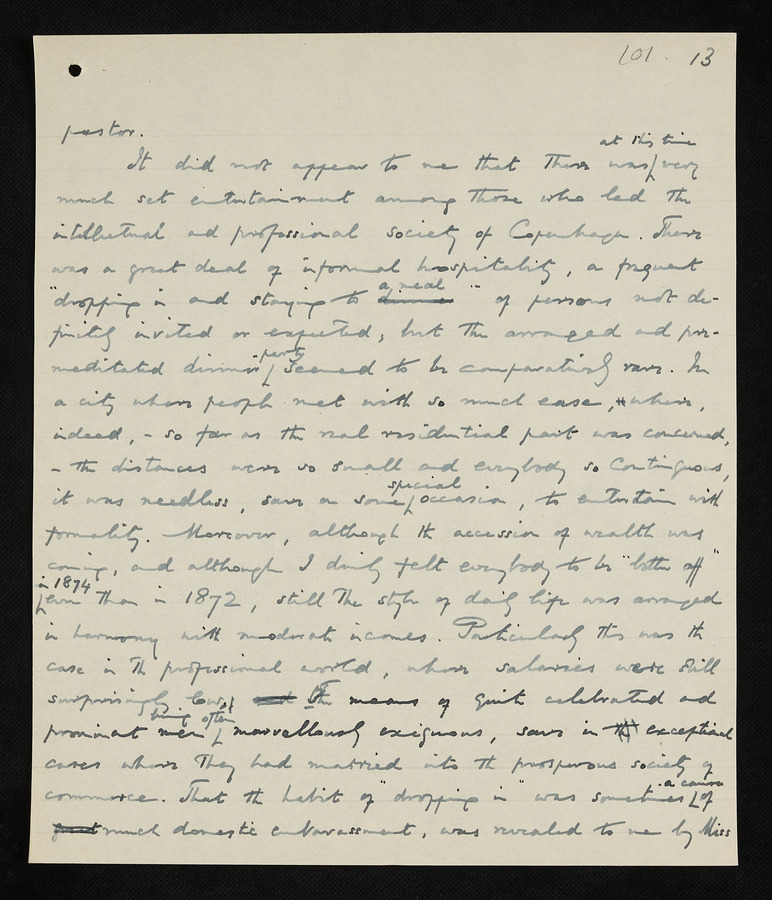 101. 13
pastor.
at this time
It did not appear to me that there was very
much set entertainment among those who led the
intellectual and professional society of Copenhagen. There
was a great deal of informal hospitality, a frequent
a meal
"dropping in and staying to dinner" of persons not de-
finitely invited or expected, but the arranged and pre-
party
meditated dinner seemed to be comparatively rare. In
a city where people met with so much ease, where,
indeed, - so far as the real residential part was concerned,
- the distances were so small and everybody so contiguous,
special
it was needless, save on some occasion, to entertain with
formality. Moreover, although the accession of wealth was
coming, and although I duly felt everybody to be "better off"
in 1874
even than in 1872, still the style of daily life was arranged
in harmony with moderate incomes. Particularly this was the
case in the professional world, where salaries were still
surprisingly low, and the means of quite celebrated and
being often
prominent men marvellously exiguous, save in the exceptional
cases where they had married into the prosperous society of
a cause
commerce. That the habit of "dropping in" was sometimes of
great much domestic embarrassment, was revealed to me by Miss